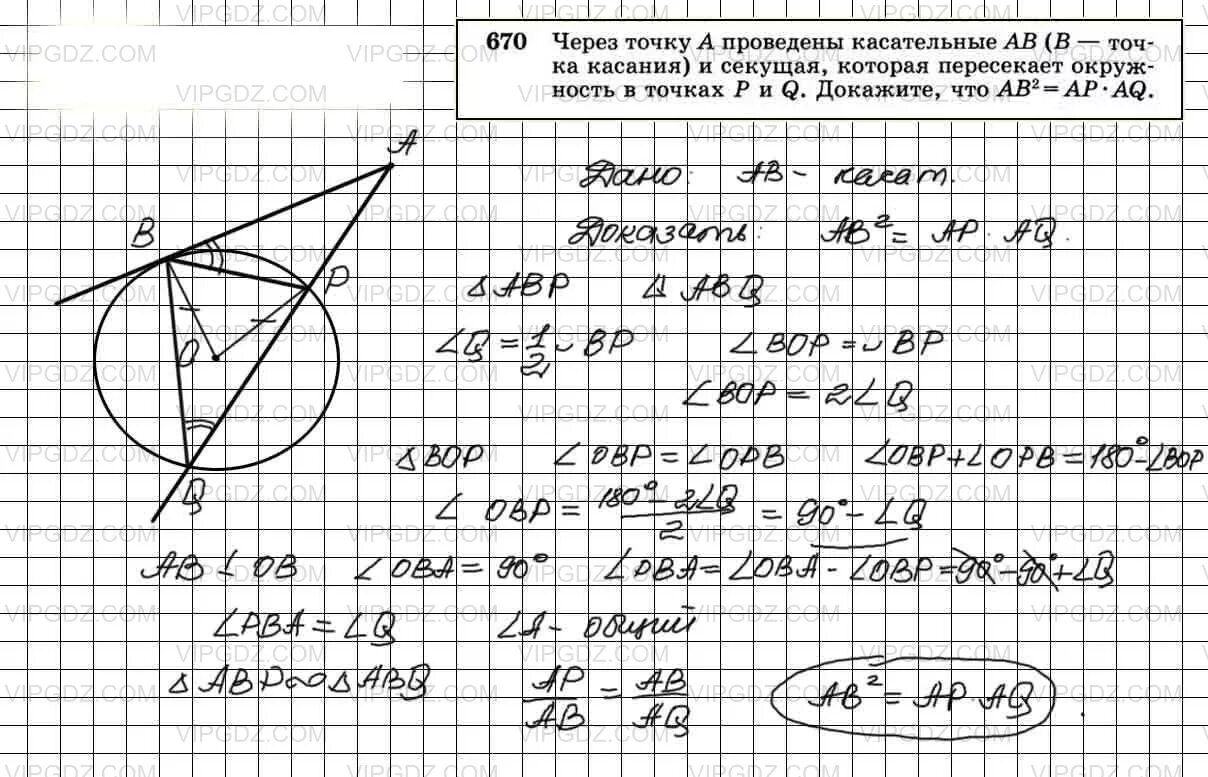 670 Через точку A проведены касательные AB (B — точ-
ка касания) и секущая, которая пересекает окруж-
ность в точках P и Q. Докажите, что AB² = AP · AQ.
A
B
P
O
Q
Дано: AB - касат.
Доказать: AB² = AP · AQ.
△ABP △ABQ
∠Q = 1/2 ◡BP ∠BOP = ◡BP
∠BOP = 2∠Q
△BOP ∠OBP = ∠OPB ∠OBP + ∠OPB = 180° - ∠BOP
∠OBP = (180° - 2∠Q)/2 = 90° - ∠Q
AB ⊥ OB ∠OBA = 90° ∠OBA = ∠OBA - ∠OBP = 90° - 90° + ∠Q
∠PBA = ∠Q ∠A - общий
△ABP ∾ △ABQ AP/AB = AB/AQ AB² = AP · AQ.
VIPGDZ.COM